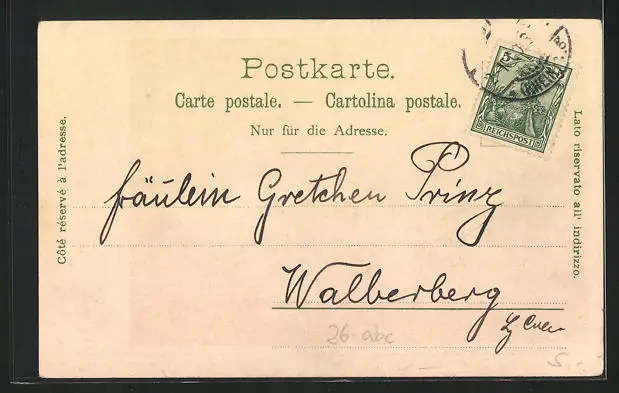 Postkarte.
Carte postale. — Cartolina postale.
Nur für die Adresse.
Côté réservé à l'adresse.
Lato riservato all' indirizzo.
REICHSPOST
5
(RHEIN)
Fräulein Gretchen Prinz
Walberberg
26-abc